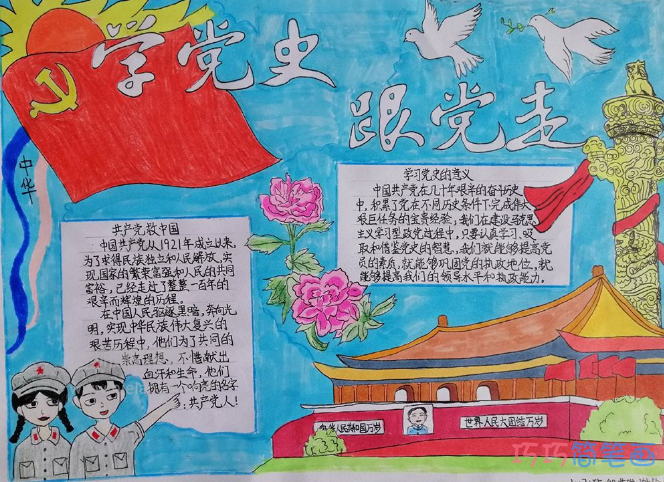 学党史
跟党走
中华
共产党,救中国
中国共产党从1921年成立以来,
为了求得民族独立和人民解放,实
现国家的繁荣富强和人民的共同
富裕,已经走过了整整一百年的
艰辛而辉煌的历程。
在中国人民驱逐黑暗,奔向光
明,实现中华民族伟大复兴的
艰苦历程中,他们为了共同的
崇高理想,不惜献出
血汗和生命,他们
拥有一个响亮的名字
:共产党人!
学习党史的意义
中国共产党在几十年艰辛的奋斗历史
中,积累了党在不同历史条件下完成伟大
艰巨任务的宝贵经验,我们在建设马克思
主义学习型政党过程中,只要认真学习、吸
取和借鉴党史的智慧,我们就能够提高党
员的素质,就能够巩固党的执政地位,就
能够提高我们的领导水平和执政能力。
人民共和国万岁
世界人民大团结万岁
巧巧简笔画